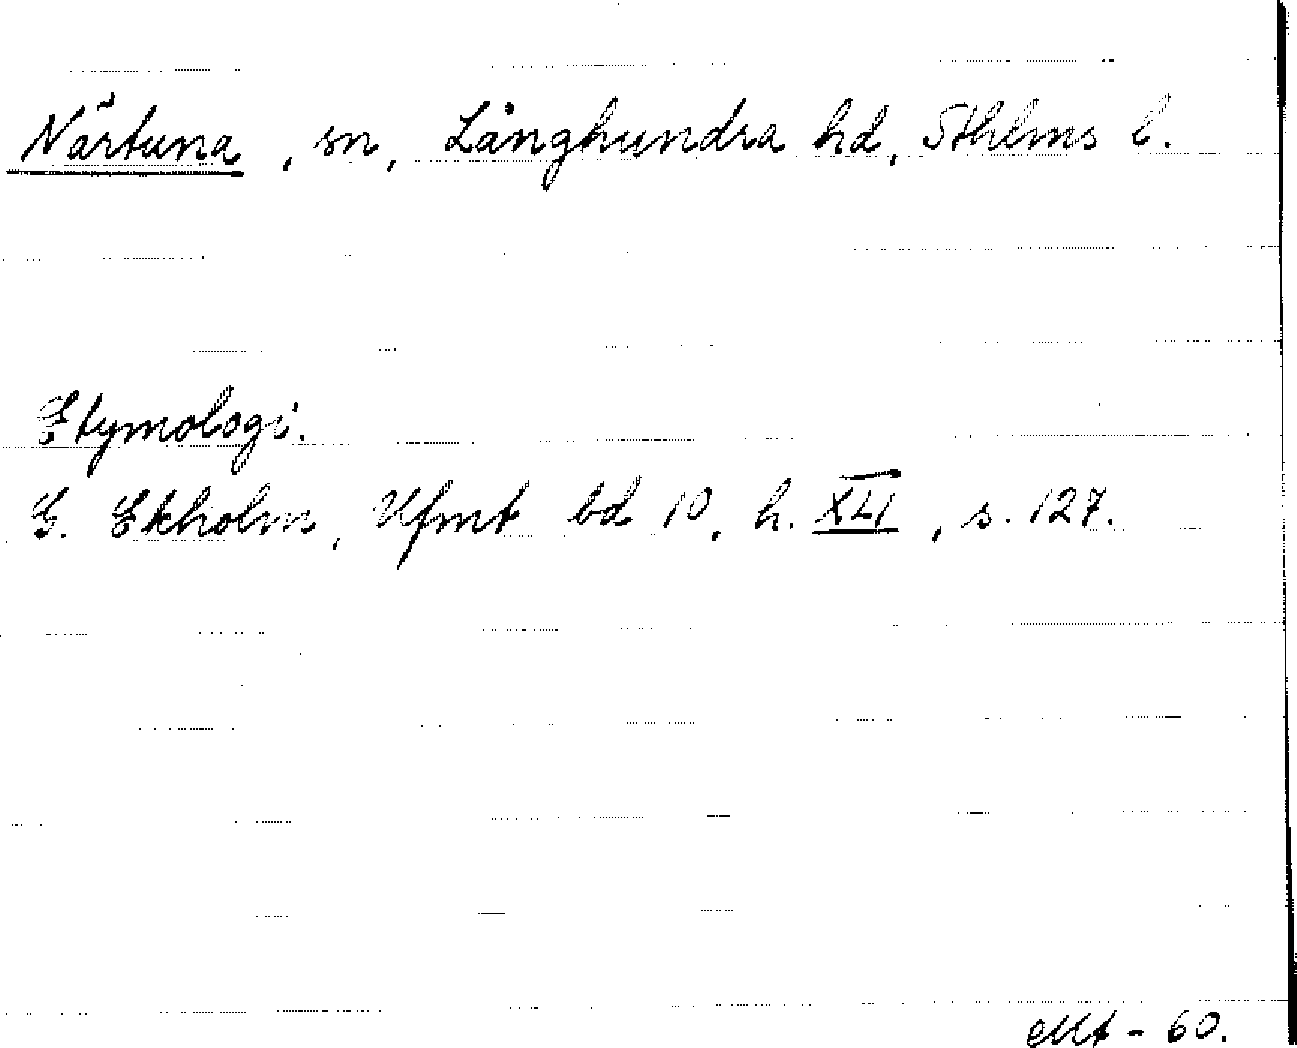 Närtuna, sn, Långhundra hd, Sthlms l.
Etymologi.
G. Ekholm, Ufmt bd 10, h. XLI, s. 127.
- 60.